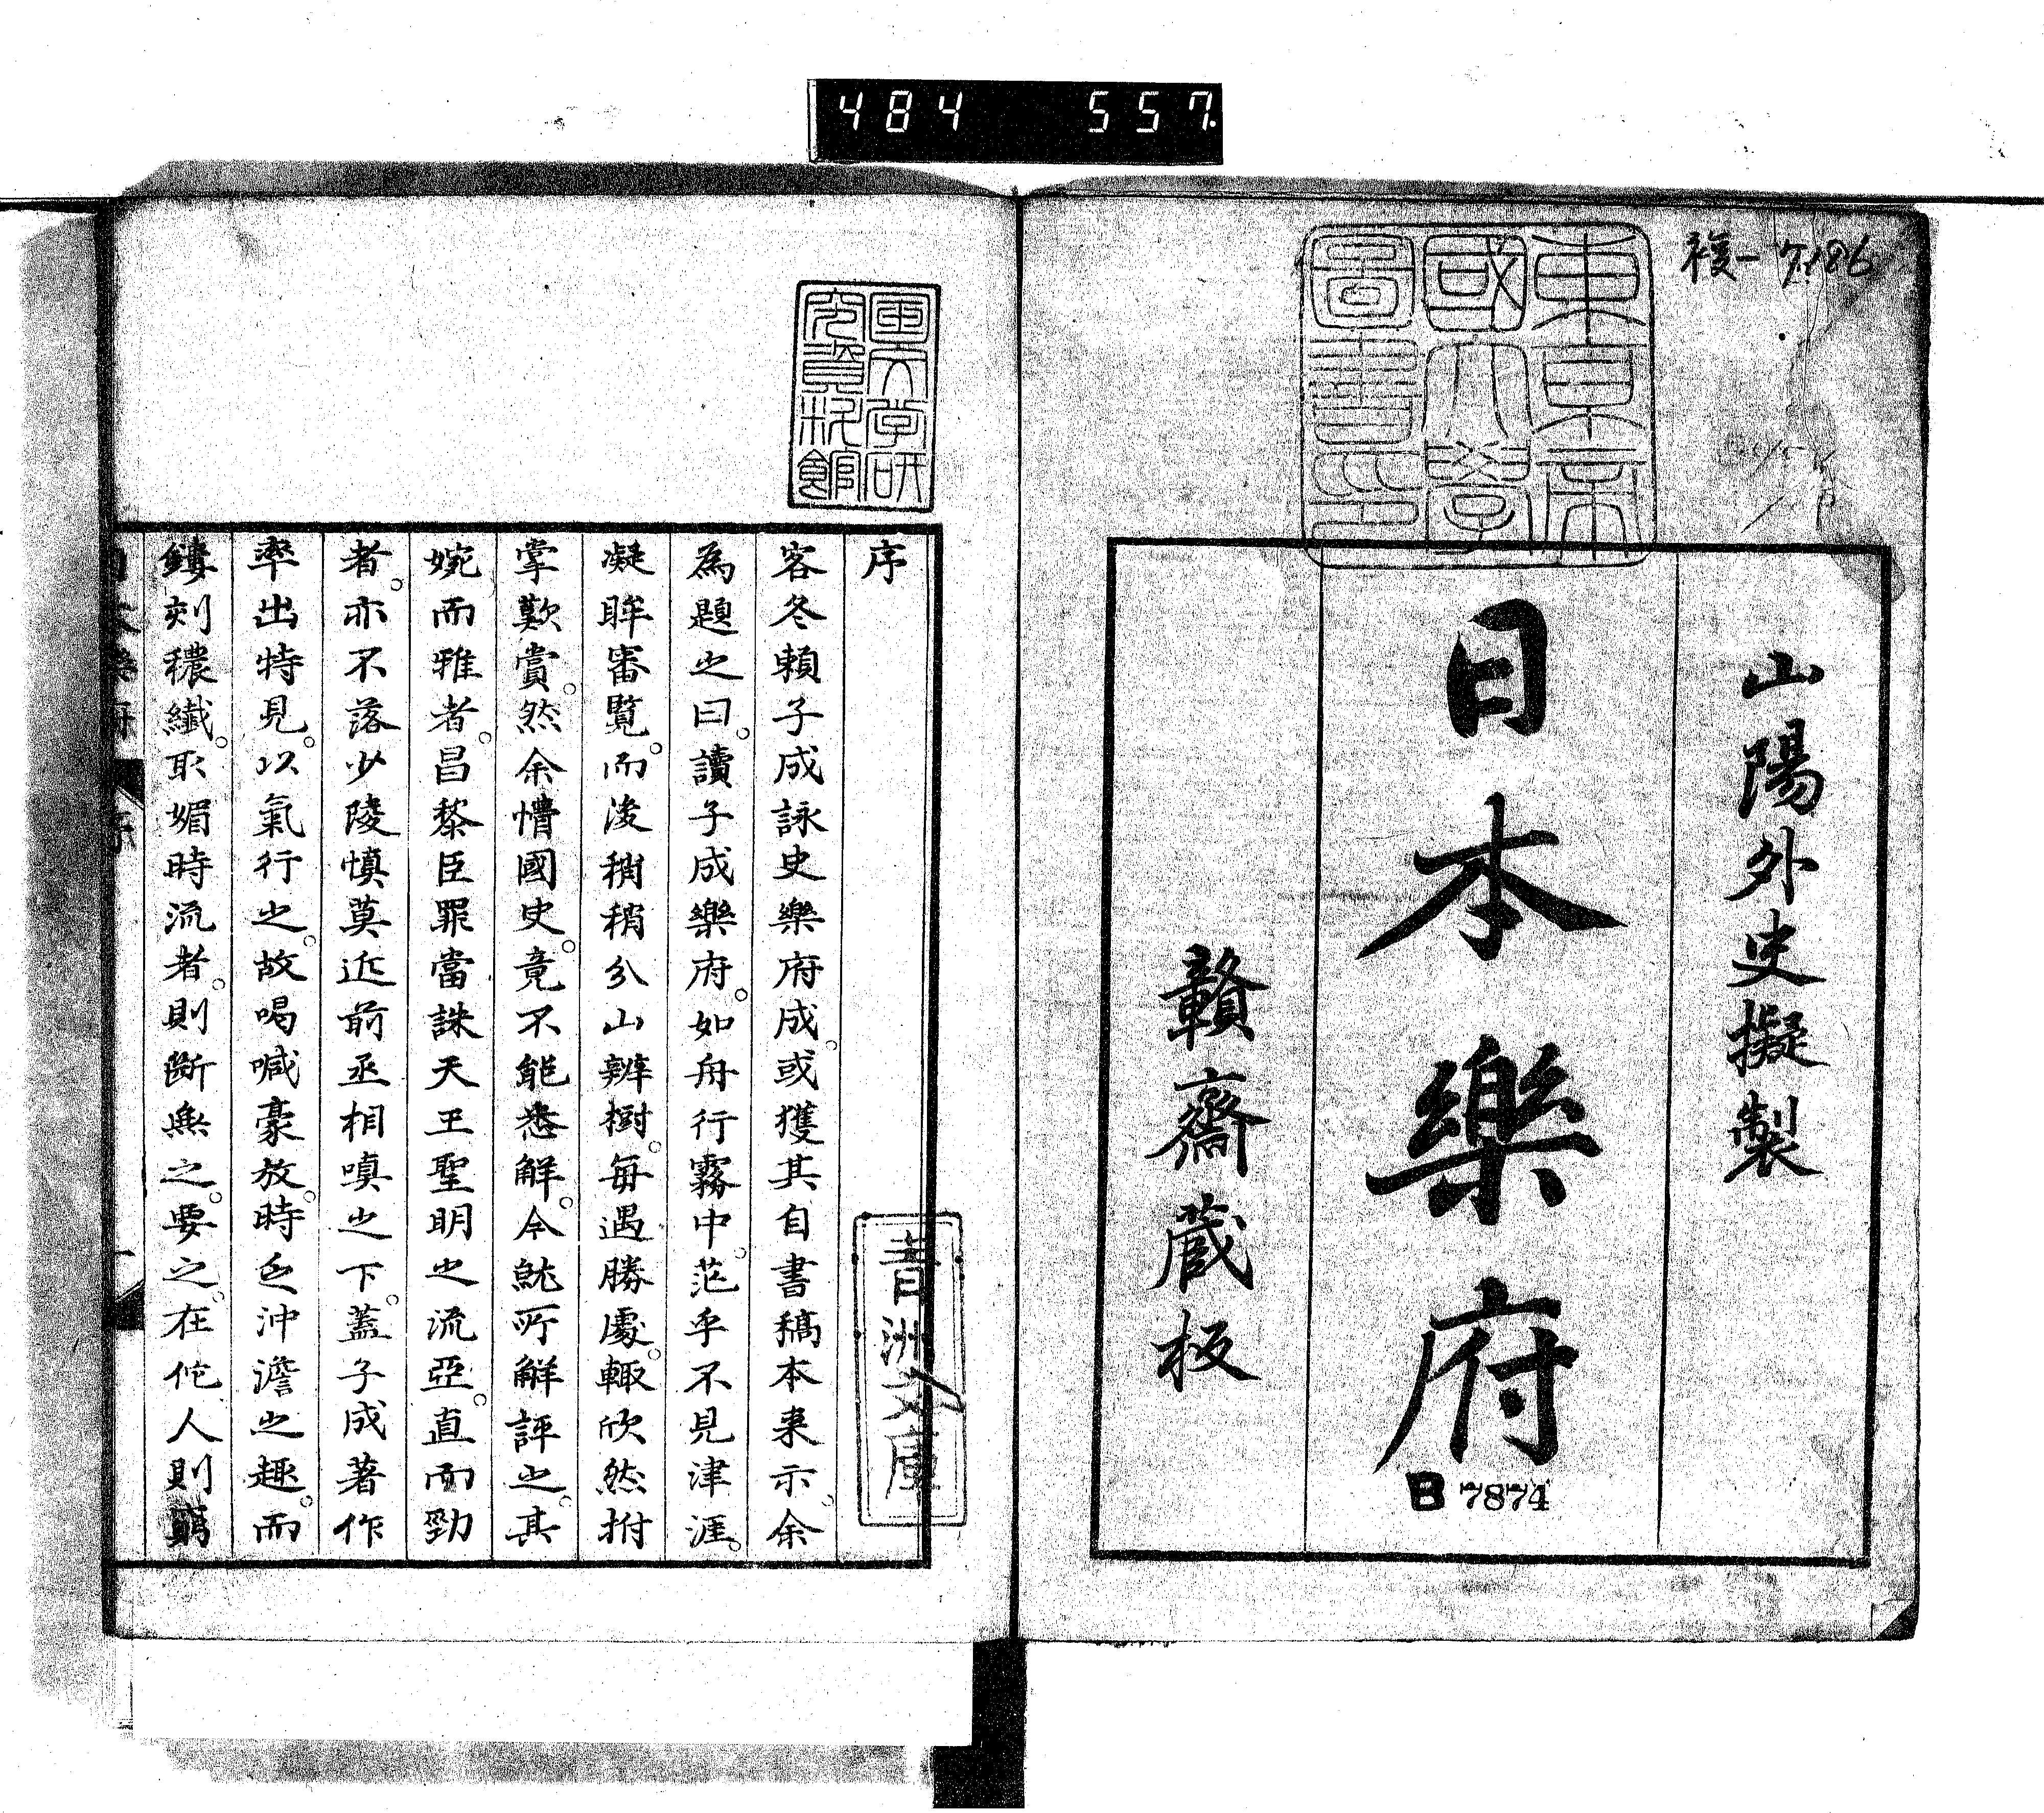 484 557
複一 7186
東京帝
國大學
圖書之印
山陽外史擬製
日本樂府
B 7874
贛齋蔵板
国文学研
究資料館
青洲文庫
序
客冬賴子成詠史樂府成。或獲其自書稿本来示。余
為題之曰。讀子成樂府。如舟行霧中。茫乎不見津涯。
凝眸審覧。而後稍稍分山辨樹。每遇勝處。輙欣然拊
掌歎賞。然余懵國史。竟不能悉解。今就所解評之。其
婉而雅者。昌黎臣罪當誅天王聖明之流亞。直而勁
者。亦不落少陵慎莫近前丞相嗔之下。蓋子成著作
率出特見。以氣行之。故喝喊豪放。時乏沖澹之趣。而
鏤刻穠纖。取媚時流者。則斷無之。要之。在佗人則竊